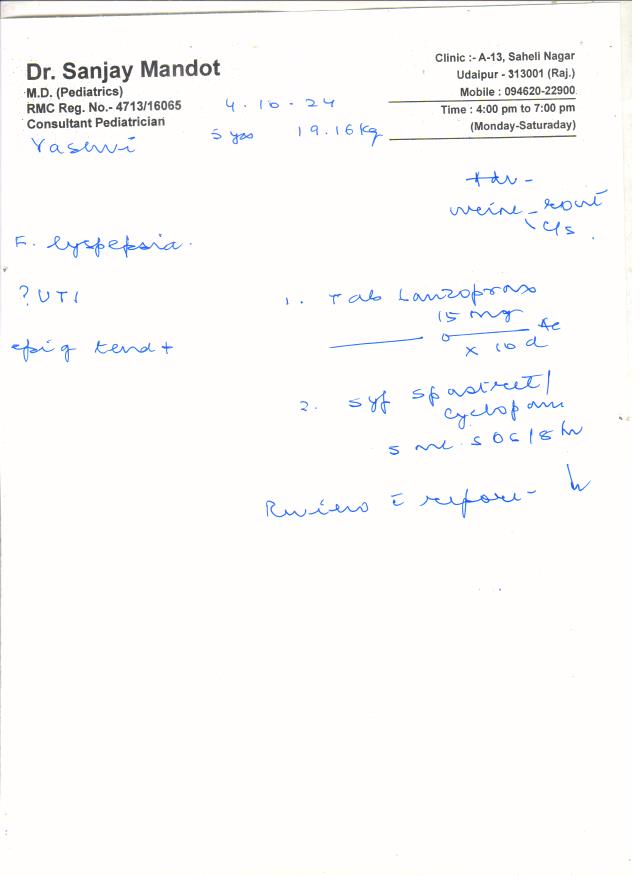 Dr. Sanjay Mandot
M.D. (Pediatrics)
RMC Reg. No.- 4713/16065
Consultant Pediatrician
Clinic :- A-13, Saheli Nagar
Udaipur - 313001 (Raj.)
Mobile : 094620-22900
Time : 4:00 pm to 7:00 pm
(Monday-Saturaday)
4.10.24
Yashvi 5 yrs 19.16 kg
Adv -
urine - rout
c/s.
F. dyspepsia.
? UTI
epig tend +
1. Tab Lanzoprax
15 mg
x 10 d
2. syp spastret/
cyclopam
5 ml SOS/8 hr
Review c̄ report